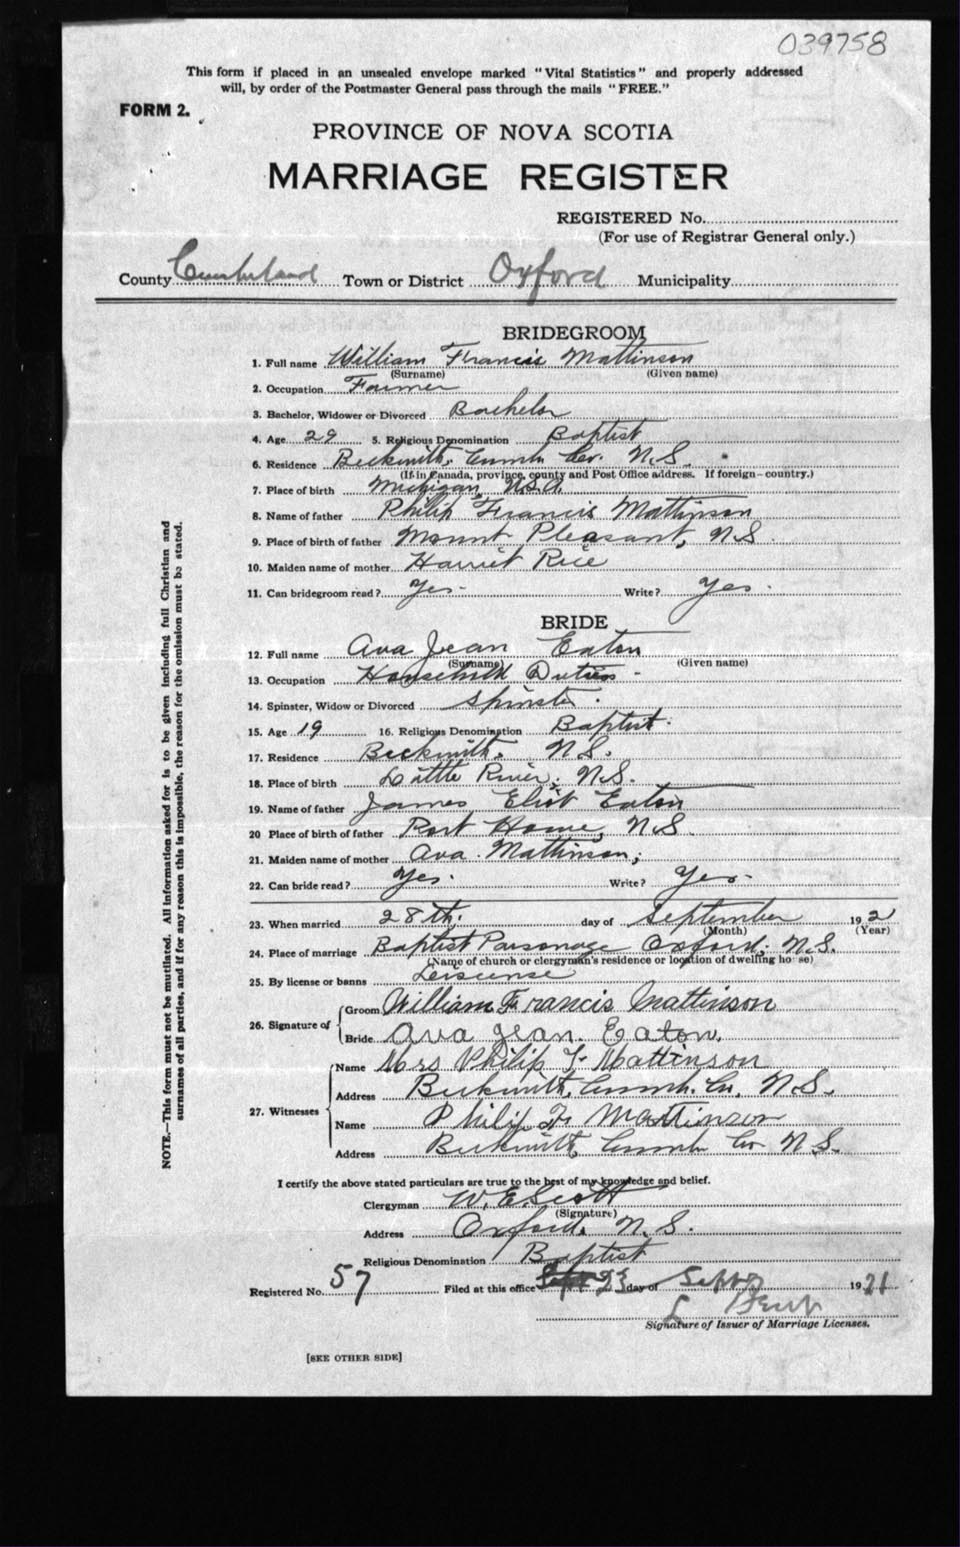 039758
This form if placed in an unsealed envelope marked "Vital Statistics" and properly addressed
will, by order of the Postmaster General pass through the mails "FREE."
FORM 2.
PROVINCE OF NOVA SCOTIA
MARRIAGE REGISTER
REGISTERED No.
(For use of Registrar General only.)
County Cumberland Town or District Oxford Municipality
BRIDEGROOM
1. Full name William Francis Mattinson
(Surname) (Given name)
2. Occupation Farmer
3. Bachelor, Widower or Divorced Bachelor
4. Age 29 5. Religious Denomination Baptist
6. Residence Beckwith, Cumb. Co. N.S.
(If in Canada, province, county and Post Office address. If foreign—country.)
7. Place of birth Michigan, U.S.A.
8. Name of father Philip Francis Mattinson
9. Place of birth of father Mount Pleasant, N.S.
10. Maiden name of mother Harriet Rice
11. Can bridegroom read? Yes. Write? Yes.
BRIDE
12. Full name Ava Jean Eaton
(Surname) (Given name)
13. Occupation Household Duties
14. Spinster, Widow or Divorced Spinster.
15. Age 19 16. Religious Denomination Baptist.
17. Residence Beckwith. N.S.
18. Place of birth Little River, N.S.
19. Name of father James Eliot Eaton
20 Place of birth of father Port Howe, N.S.
21. Maiden name of mother Ava Mattinson;
22. Can bride read? Yes. Write? Yes.
23. When married 28th. day of September 192
(Month) (Year)
24. Place of marriage Baptist Parsonage Oxford, N.S.
(Name of church or clergyman's residence or location of dwelling house)
25. By license or banns Leisense
26. Signature of
Groom William Francis Mattinson
Bride Ava Jean Eaton.
27. Witnesses
Name Mrs Philip F Mattinson
Address Beckwith, Cumb. Co, N.S.
Name Philip F Mattinson
Address Beckwith, Cumb Co N.S.
I certify the above stated particulars are true to the best of my knowledge and belief.
Clergyman W. E. Scott
(Signature)
Address Oxford, N.S.
Religious Denomination Baptist
Registered No. 57 Filed at this office 23 day of Sept 1921
Signature of Issuer of Marriage Licenses.
[SEE OTHER SIDE]
NOTE.—This form must not be mutilated. All information asked for is to be given including full Christian and
surnames of all parties, and if for any reason this is impossible, the reason for the omission must be stated.